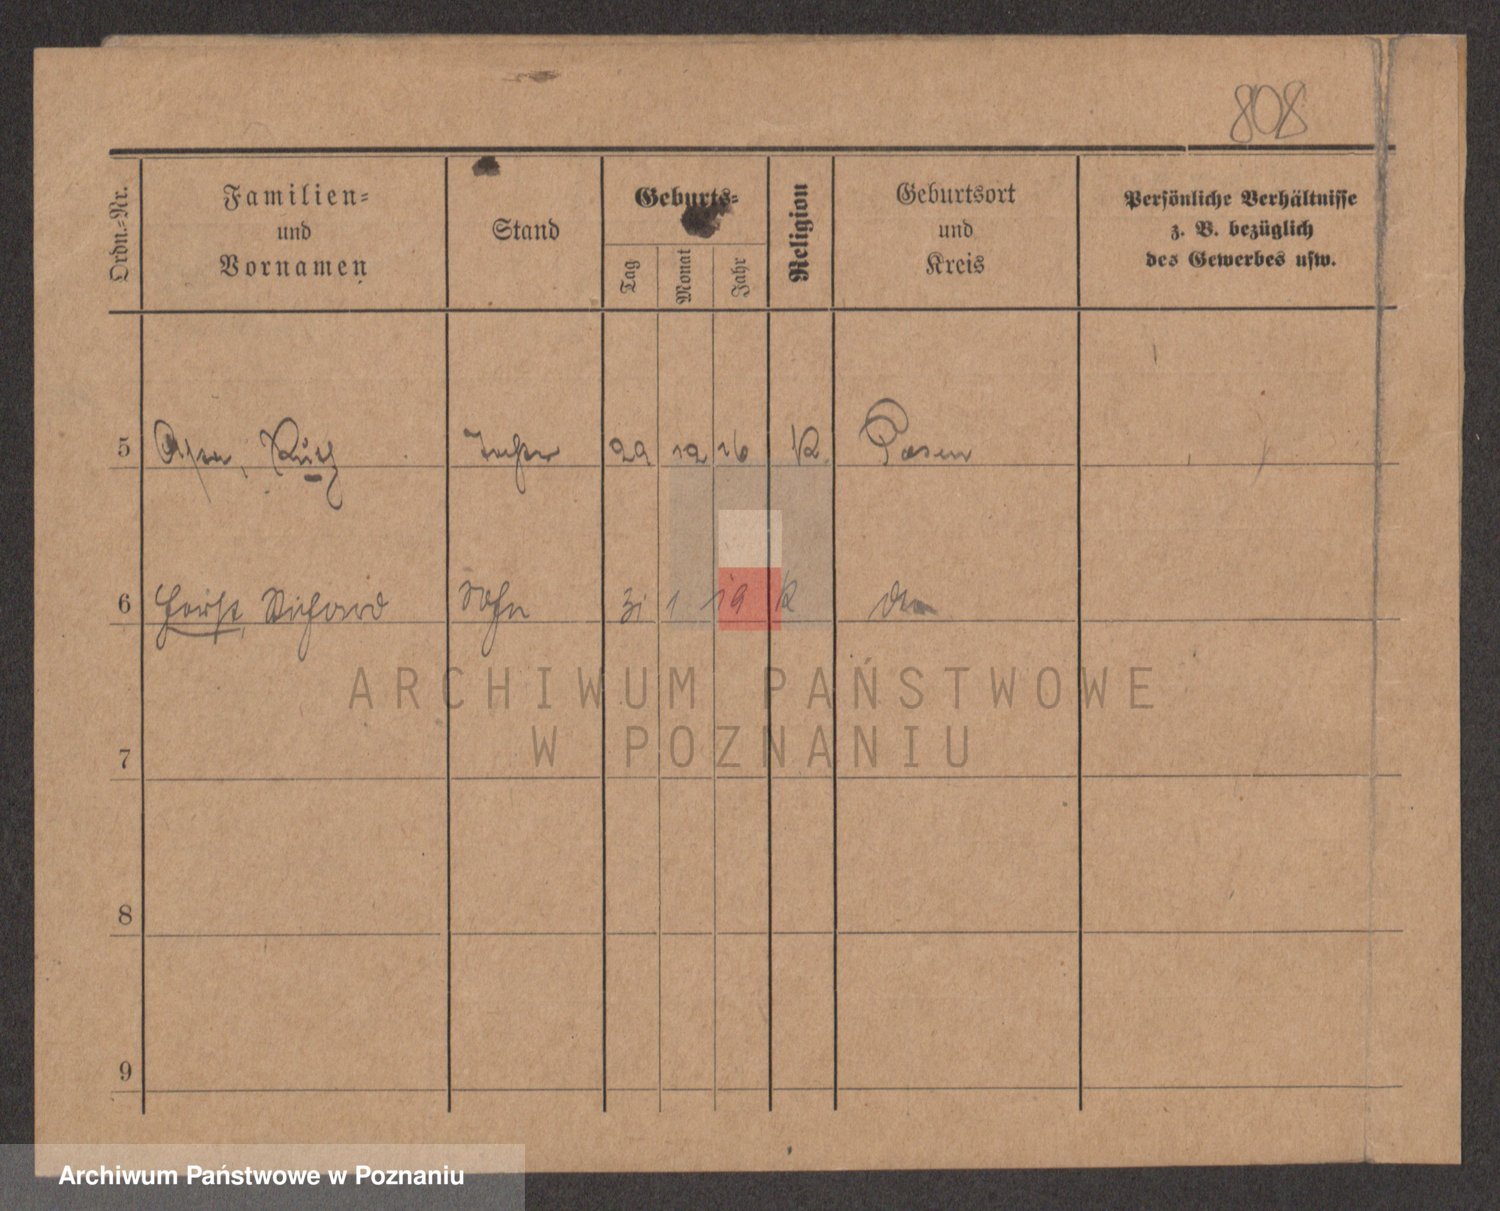 808
Ordn.-Nr.
Familien-
und
Vornamen
Stand
Geburts-
Tag
Monat
Jahr
Religion
Geburtsort
und
Kreis
Persönliche Verhältnisse
z. B. bezüglich
des Gewerbes usw.
5 Ruth Tochter 29 12 16 K Posen
6 Horst, Richard Sohn 31 1 19 K
7
8
9
ARCHIWUM PAŃSTWOWE
W POZNANIU
Archiwum Państwowe w Poznaniu